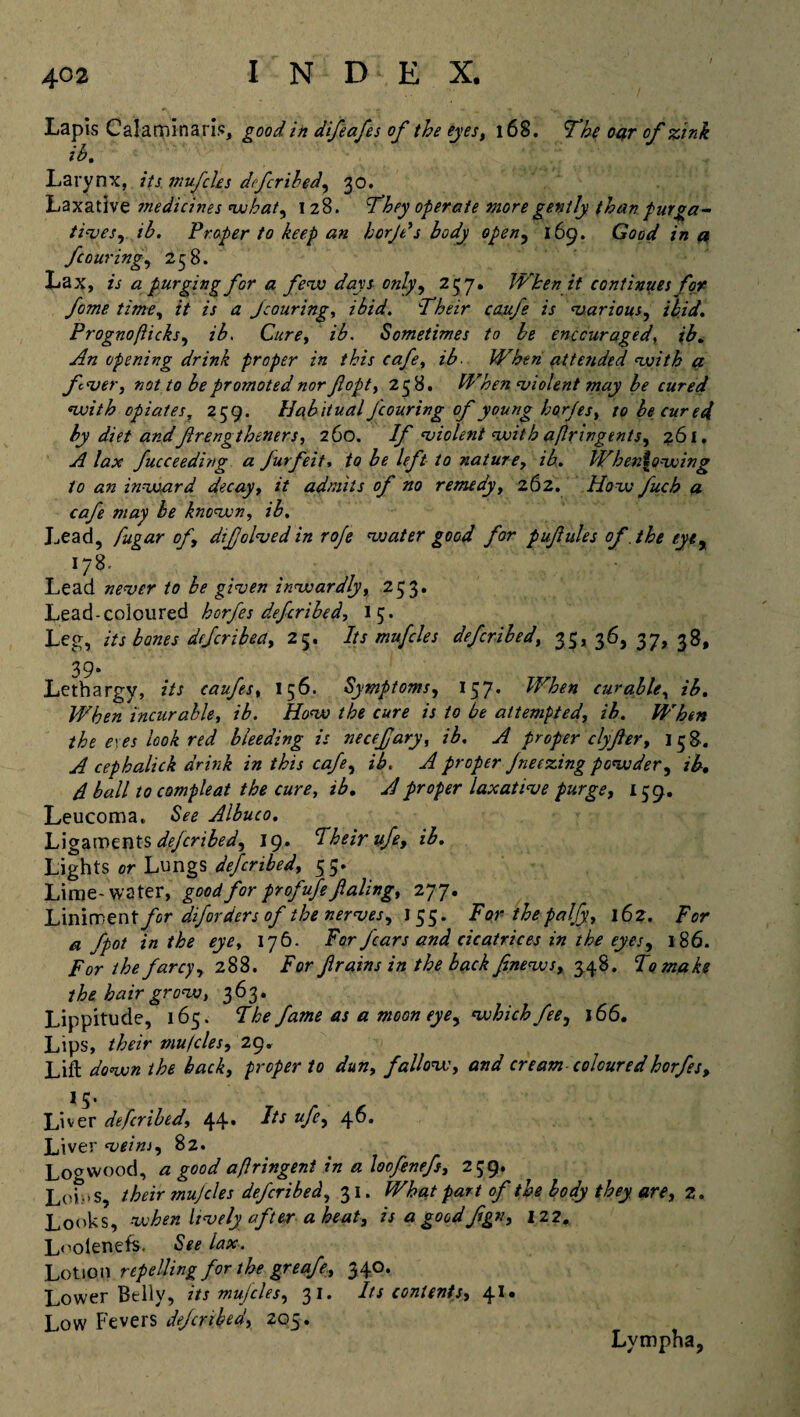 402 INDEX.
Lapis Calaminaris, good in diſeaſes of the eyes, 168. The oar of zink
ib.
Larynx, its muſcles deſcribed, 30.
Laxative medicines what, 128. They operate more gently than purga-
tives, ib. Proper to keep an horſe's body open, 169. Good in a
ſcouring, 258.
Lax, is a purging for a few days only, 257. When it continues for
ſome time, it is a ſcouring, ibid. Their cauſe is various, ibid.
Prognoſticks, ib. Cure, ib. Sometimes to be encouraged, ib.
An opening drink proper in this caſe, ib. When attended with a
fever, not to be promoted nor ſtopt, 258. When violent may be cured
with opiates, 259. Habitual ſcouring of young horſes, to be cured
by diet and ſtrengtheners, 260. If violent with aſtringents, 261.
A lax ſucceeding a ſurfeit, to be left to nature, ib. When owing
to an inward decay, it admits of no remedy, 262. How ſuch a
caſe may be known, ib.
Lead, ſugar of, diſſolved in roſe water good for puſtules of the eye,
178.
Lead never to be given inwardly, 253.
Lead-coloured horſes deſcribed, 15.
Leg, its bones deſcribed, 25. Its muſcles deſcribed, 35, 36, 37, 38,
39.
Lethargy, its cauſes, 156. Symptoms, 157. When curable, ib.
When incurable, ib. How the cure is to be attempted, ib. When
the eyes look red bleeding is neceſſary, ib. A proper clyſter, 158.
A cephalick drink in this caſe, ib. A proper ſneezing powder, ib.
A ball to compleat the cure, ib. A proper laxative purge, 159.
Leucoma. See Albuco.
Ligaments deſcribed, 19. Their uſe, ib.
Lights or Lungs deſcribed, 55.
Lime-water, good for profuſe ſtaling, 277.
Liniment for diſorders of the nerves, 155. For the palſy, 162. For
a ſpot in the eye, 176. For ſcars and cicatrices in the eyes, 186.
For the farcy, 288. For ſtrains in the back ſinews, 348. To make
the hair grow, 363.
Lippitude, 165. The ſame as a moon eye, which ſee, 166.
Lips, their muſcles, 29.
Liſt down the back, proper to dun, fallow, and cream-coloured horſes,
15.
Liver deſcribed, 44. Its uſe, 46.
Liver veins, 82.
Logwood, a good aſtringent in a looſeneſs, 259.
Loins, their muſcles deſcribed, 31. What part of the body they are, 2.
Looks, when lively after a heat, is a good ſign, 122.
Looſeneſs. See lax.
Lotion repelling for the greaſe, 340.
Lower Belly, its muſcles, 31. Its contents, 41.
Low Fevers deſcribed, 205.
Lympha,